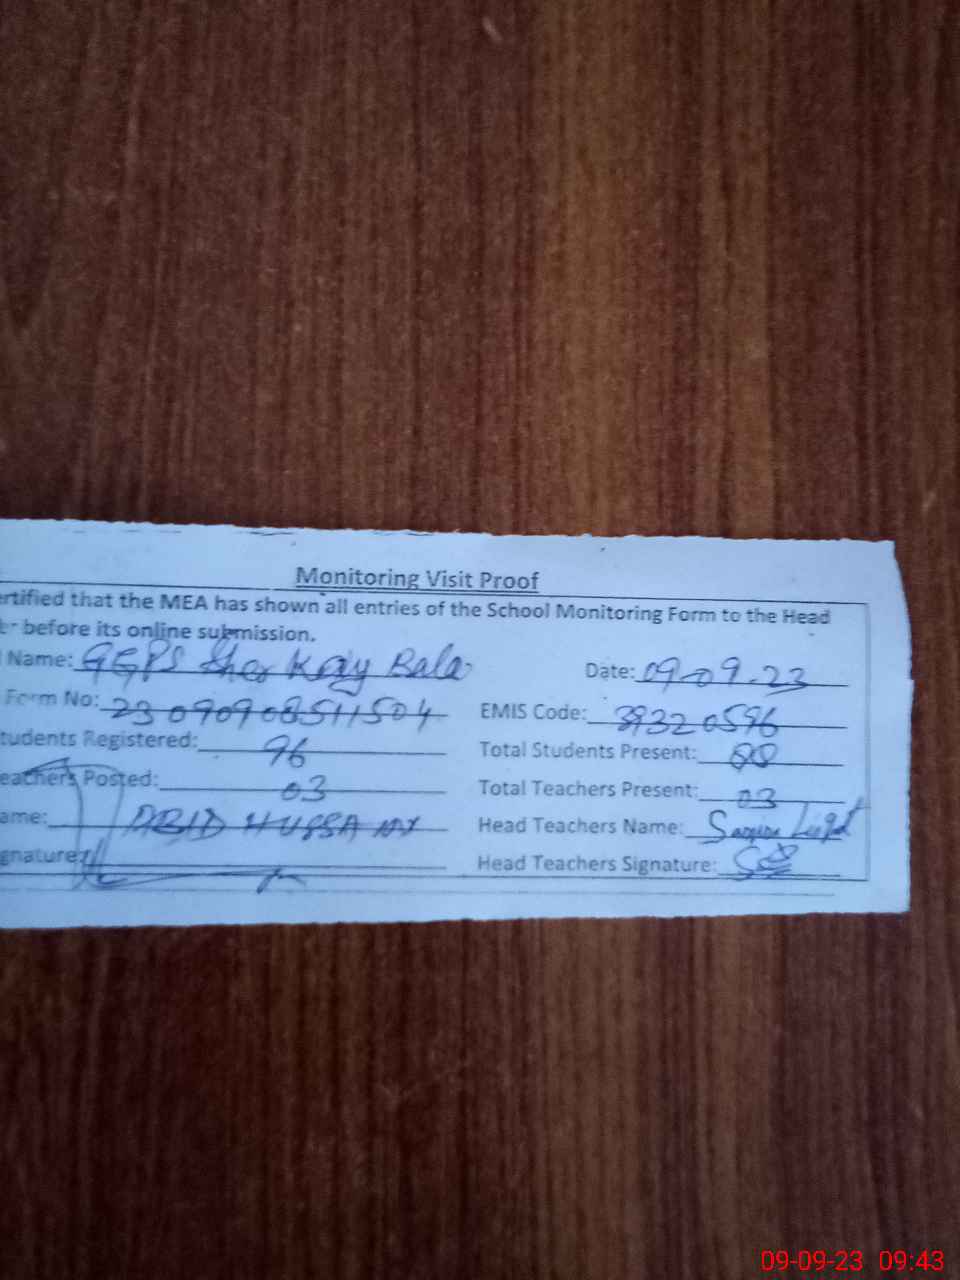 Monitoring Visit Proof
ertified that the MEA has shown all entries of the School Monitoring Form to the Head
before its online submission.
Name: GGPS Sher Kray Bala Date: 09-09-23
Form No: 23090908511504 EMIS Code: 39320596
tudents Registered: 96 Total Students Present:
eachers Posted: 03 Total Teachers Present: 03
ame: ABID HUSSAIN Head Teachers Name:
gnature: Head Teachers Signature:
09-09-23 09:43